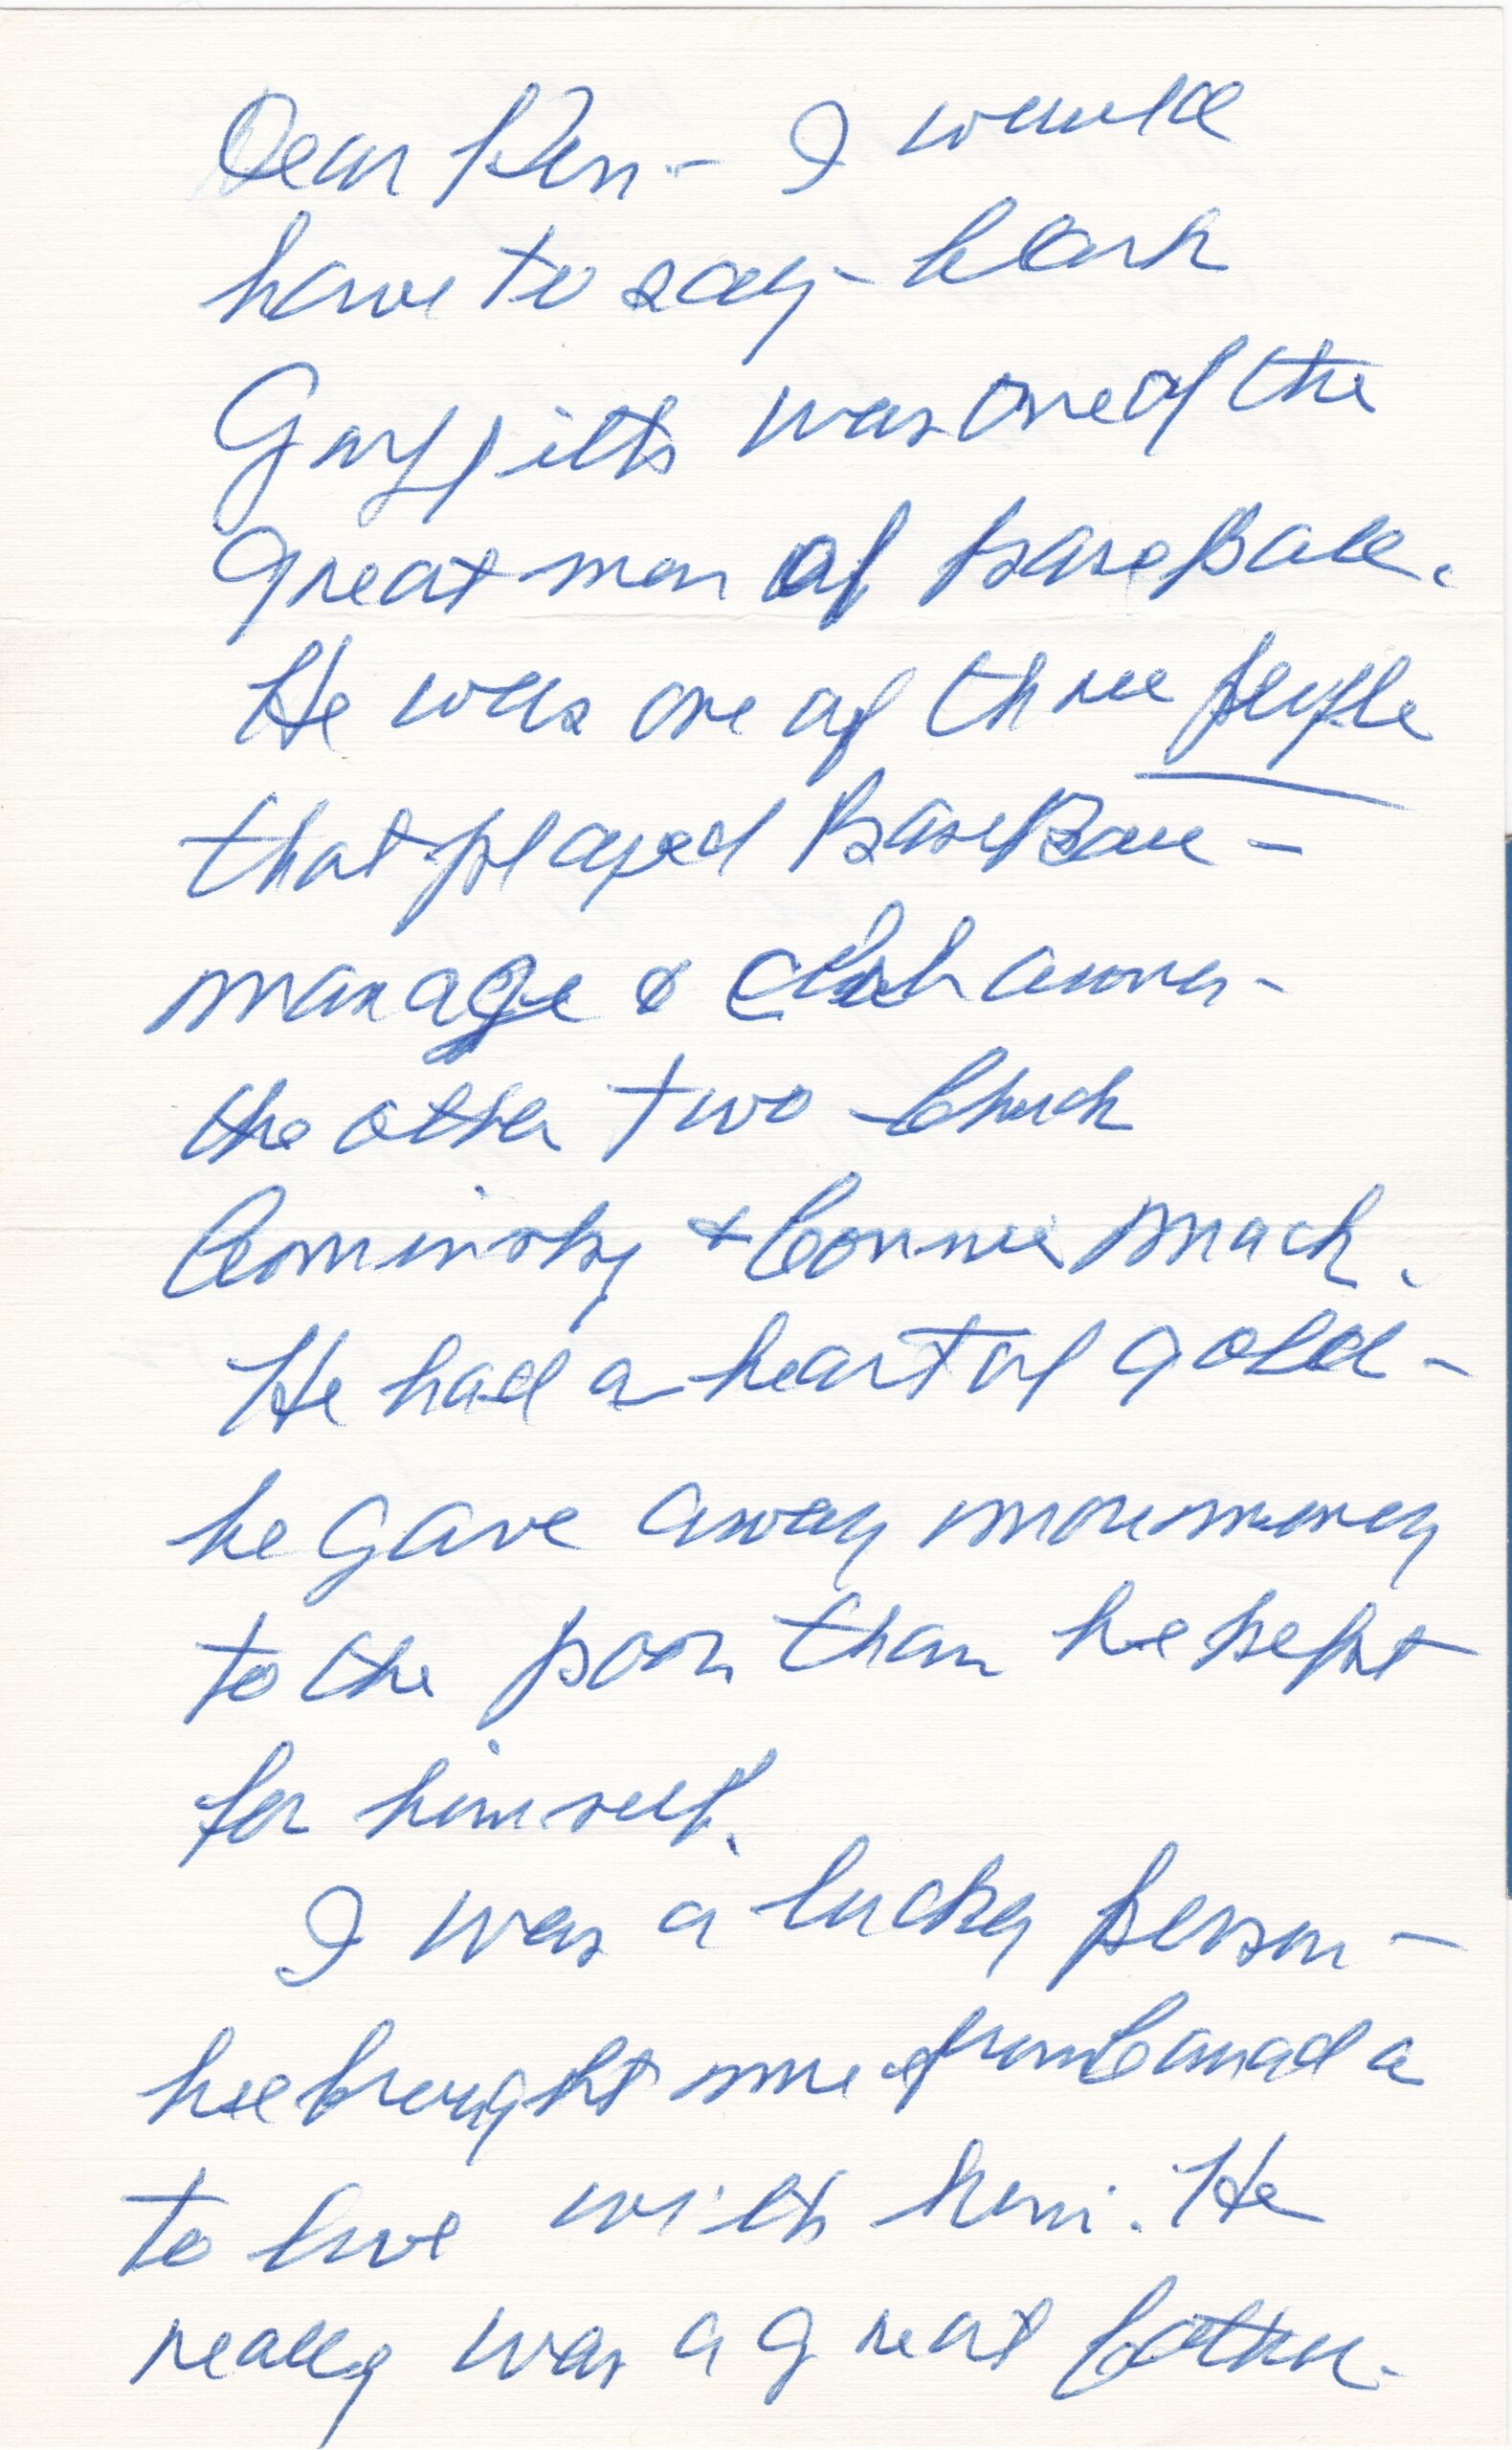 Dear Ken - I would
have to say - Clark
Griffith was one of the
great men of BaseBall.
He was one of three people
that played BaseBall -
manage & Club owner -
the other two - Chuck
Cominsky & Connie Mack.
He had a heart of gold -
he gave away more money
to the poor than he kept
for himself.
I was a lucky person -
he brought me from Canada
to live with him. He
really was a great father.